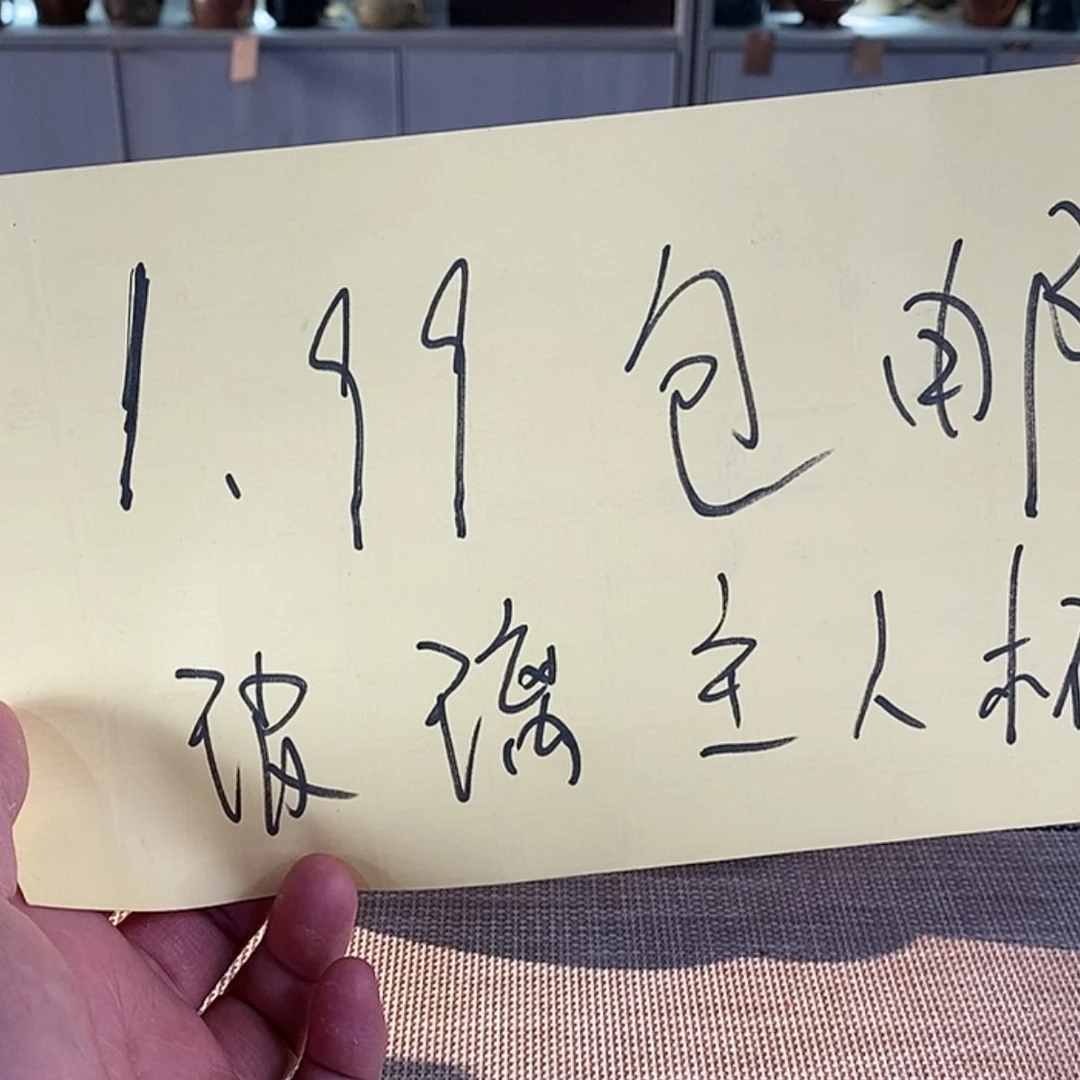 1.99包邮
玻璃主人杯